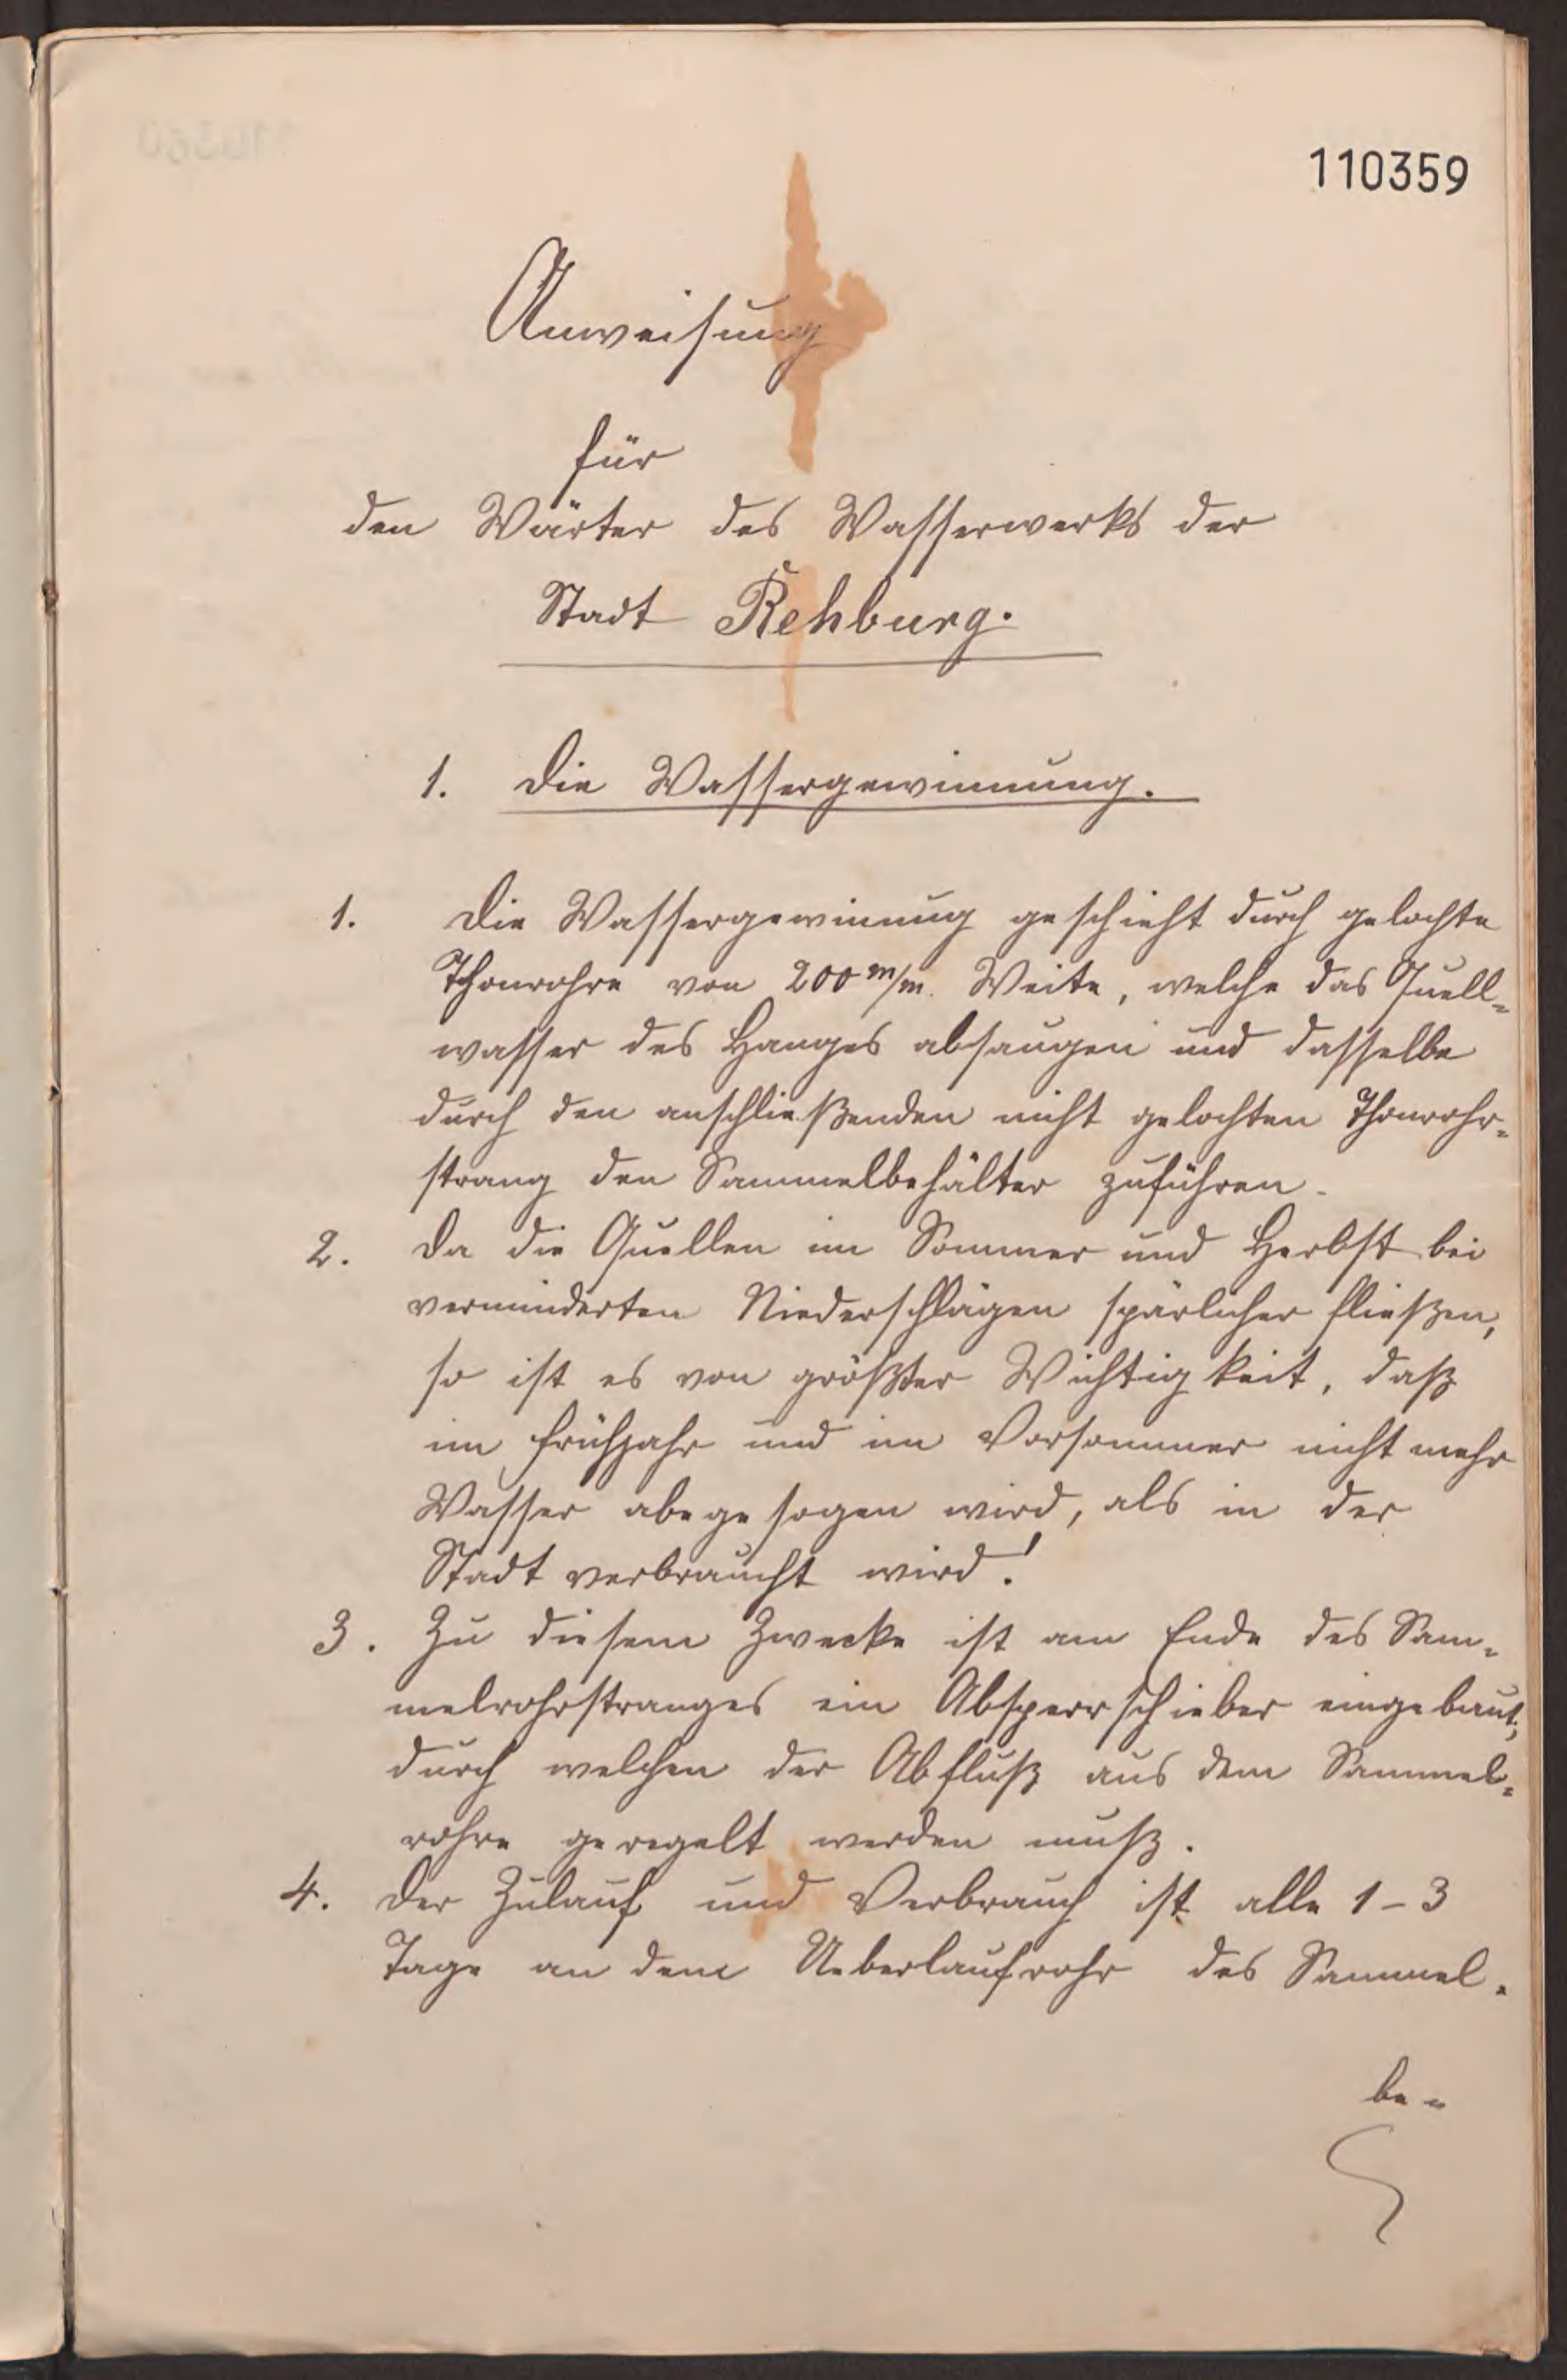 110359
Anweisung
für
den Wärter des Wasserwerks der
Stadt Rehburg.
1. Die Wassergewinnung.
1. Die Wassergewinnung geschieht durch gelochte
Thonrohre von 200 m/m. Weite, welche das Quell-
wasser des Hanges absaugen und dasselbe
durch den anschließenden nicht gelochten Thonrohr-
strang den Sammelbehälter zuführen.
2. Da die Quellen im Sommer und Herbst bei
verminderten Niederschlägen spärlicher fließen,
so ist es von größter Wichtigkeit, daß
im Frühjahr und im Vorsommer nicht mehr
Wasser abegesogen wird, als in der
Stadt verbraucht wird!
3. Zu diesem Zwecke ist am Ende des Sam-
melrohrstranges ein Absperrschieber eingebaut,
durch welchen der Abfluß aus dem Sammel-
rohre geregelt werden muß.
4. Der Zulauf und Verbrauch ist alle 1-3
Tage an dem Ueberlaufrohr des Sammel-
be-